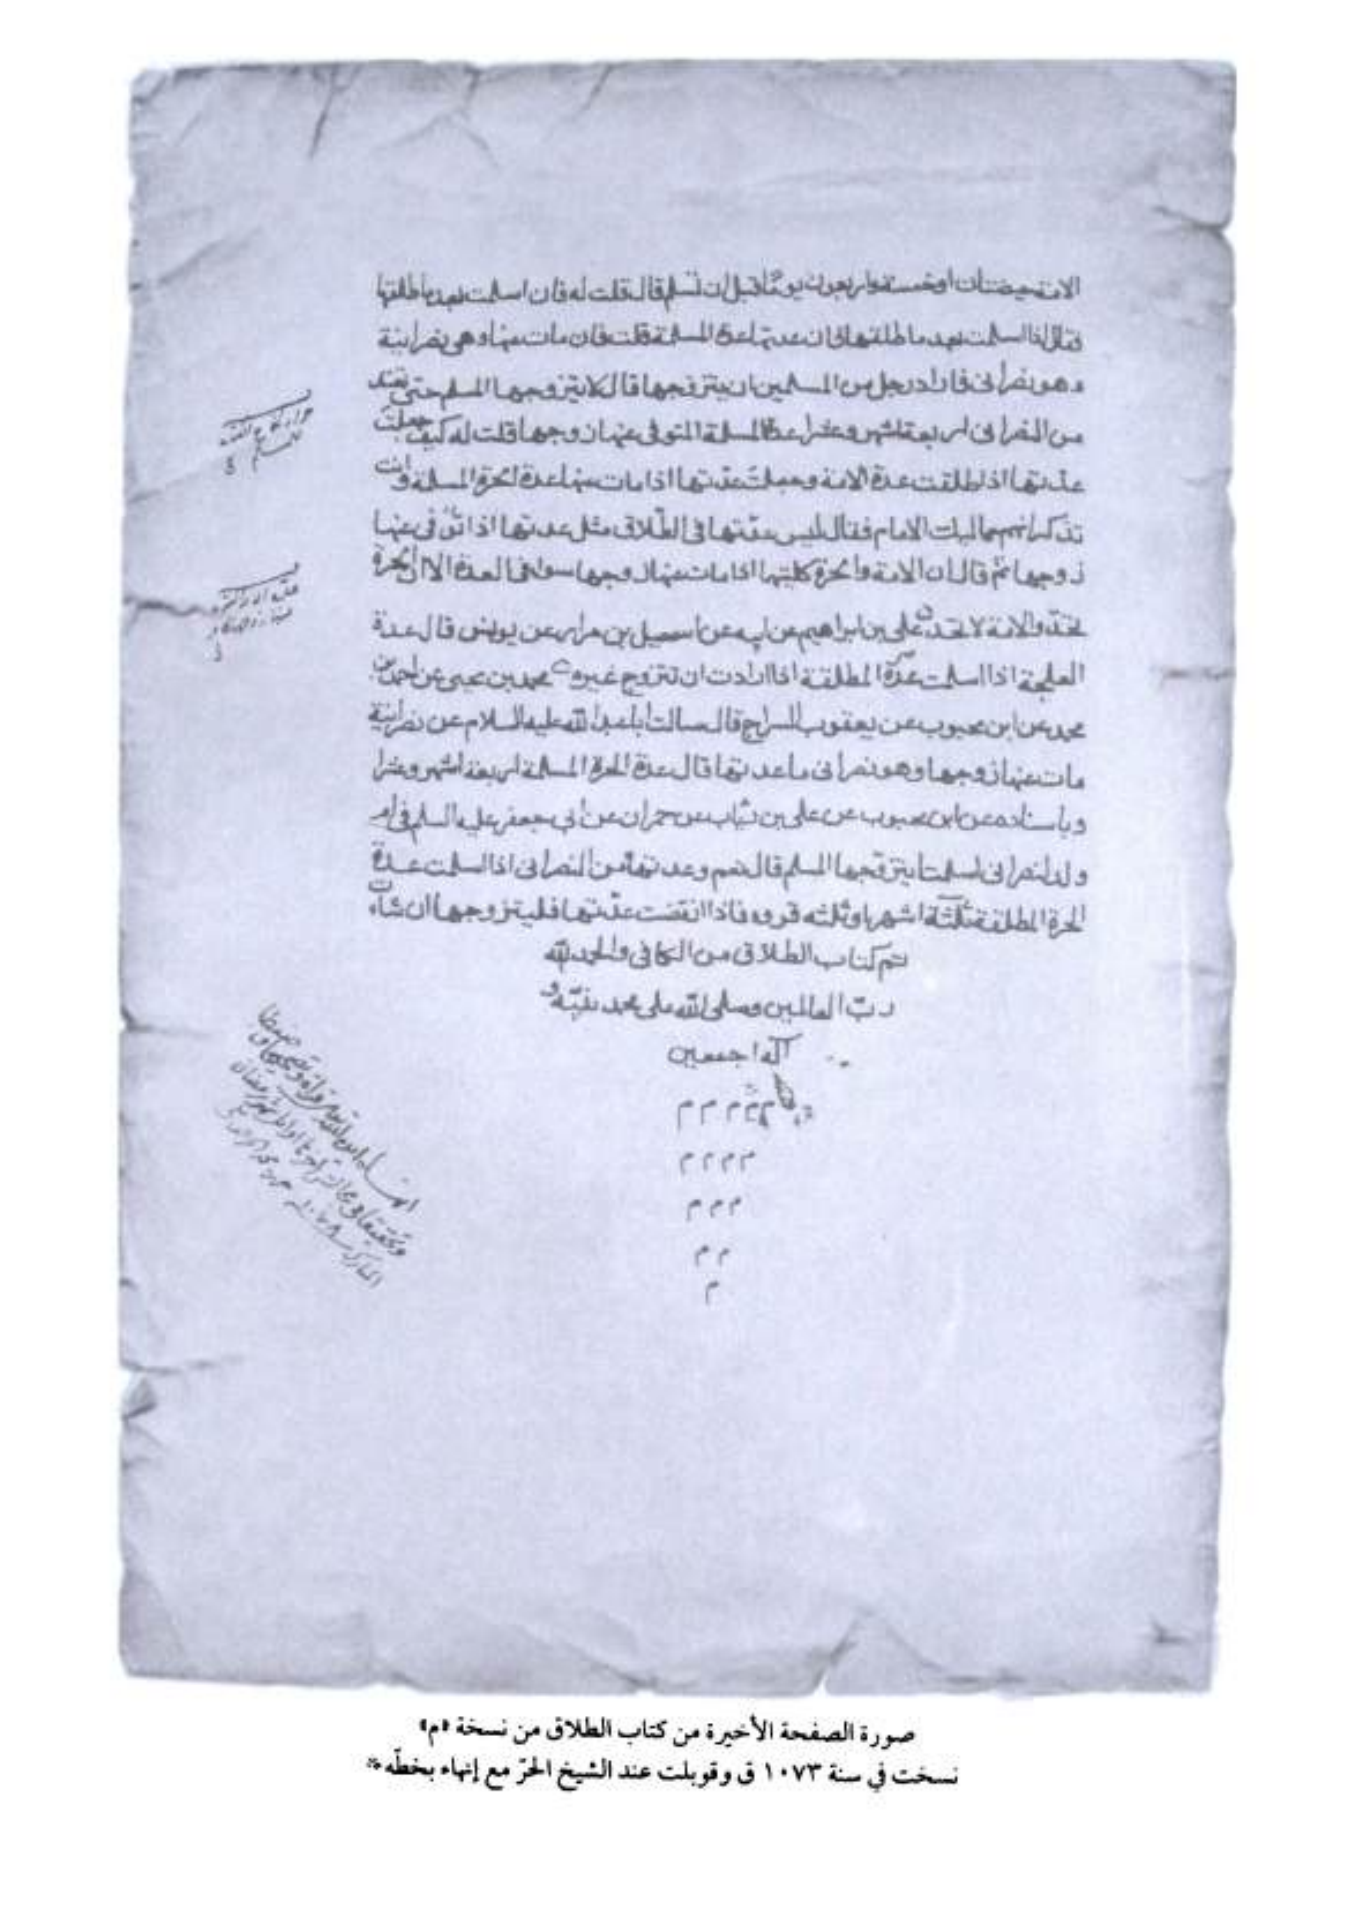 الامة حيضتان او خمسة واربعون يوما قبل ان تسلم قال قلت له فان اسلمت بعد ما طلقها
فقال اذا اسلمت بعد ما طلقها فان عدتها عدة المسلمة قلت فان مات عنها وهي نصرانية
وهو نصراني فاراد رجل من المسلمين ان يتزوجها قال لا يتزوجها المسلم حتى تعتد
من النصراني اربعة اشهر وعشرا عدة المسلمة المتوفى عنها زوجها قلت له كيف جعلت
عدتها اذا طلقت عدة الامة وجعلت عدتها اذا مات عنها عدة الحرة المسلمة وانت
تذكر انهم مماليك الامام فقال ليس عدتها في الطّلاق مثل عدتها اذا توفى عنها
زوجها ثم قال ان الامة والحرة كلتيهما اذا مات عنها زوجها سواء في العدة الا ان الحرة
تحدّ والامة لا تحد علي بن ابراهيم عن ابيه عن اسمعيل بن مرار عن يونس قال عدة
العلجة اذا اسلمت عدّة المطلقة اذا ارادت ان تتزوج غيره محمد بن يحيى عن احمد بن
محمد عن ابن محبوب عن يعقوب السراج قال سالت ابا عبد الله عليه السلام عن نصرانية
مات عنها زوجها وهو نصراني ما عدتها قال عدة الحرة المسلمة اربعة اشهر وعشرا
وباسناده عن ابن محبوب عن علي بن رئاب عن حمران عن ابي جعفر عليه السلم في ام
ولد لنصراني اسلمت ايتزوجها المسلم قال نعم وعدتها من النصراني اذا اسلمت عدة
الحرة المطلقة ثلثة اشهر او ثلثه قروء فاذا انقضت عدّتها فليتزوجها ان شاءت
تم كتاب الطلاق من الكافي والحمد لله
ربّ العالمين وصلى الله على محمد نبيّه و
آله اجمعين
م م م م م
م م م م
م م م
م م
م
انهاه ايده الله تعالى قراءة وتصحيحا وضبطا
المبارك ١٠٧٨
صورة الصفحة الأخيرة من كتاب الطلاق من نسخة «م»
نسخت في سنة ١٠٧٣ ق وقوبلت عند الشيخ الحرّ مع إنهاء بخطّه